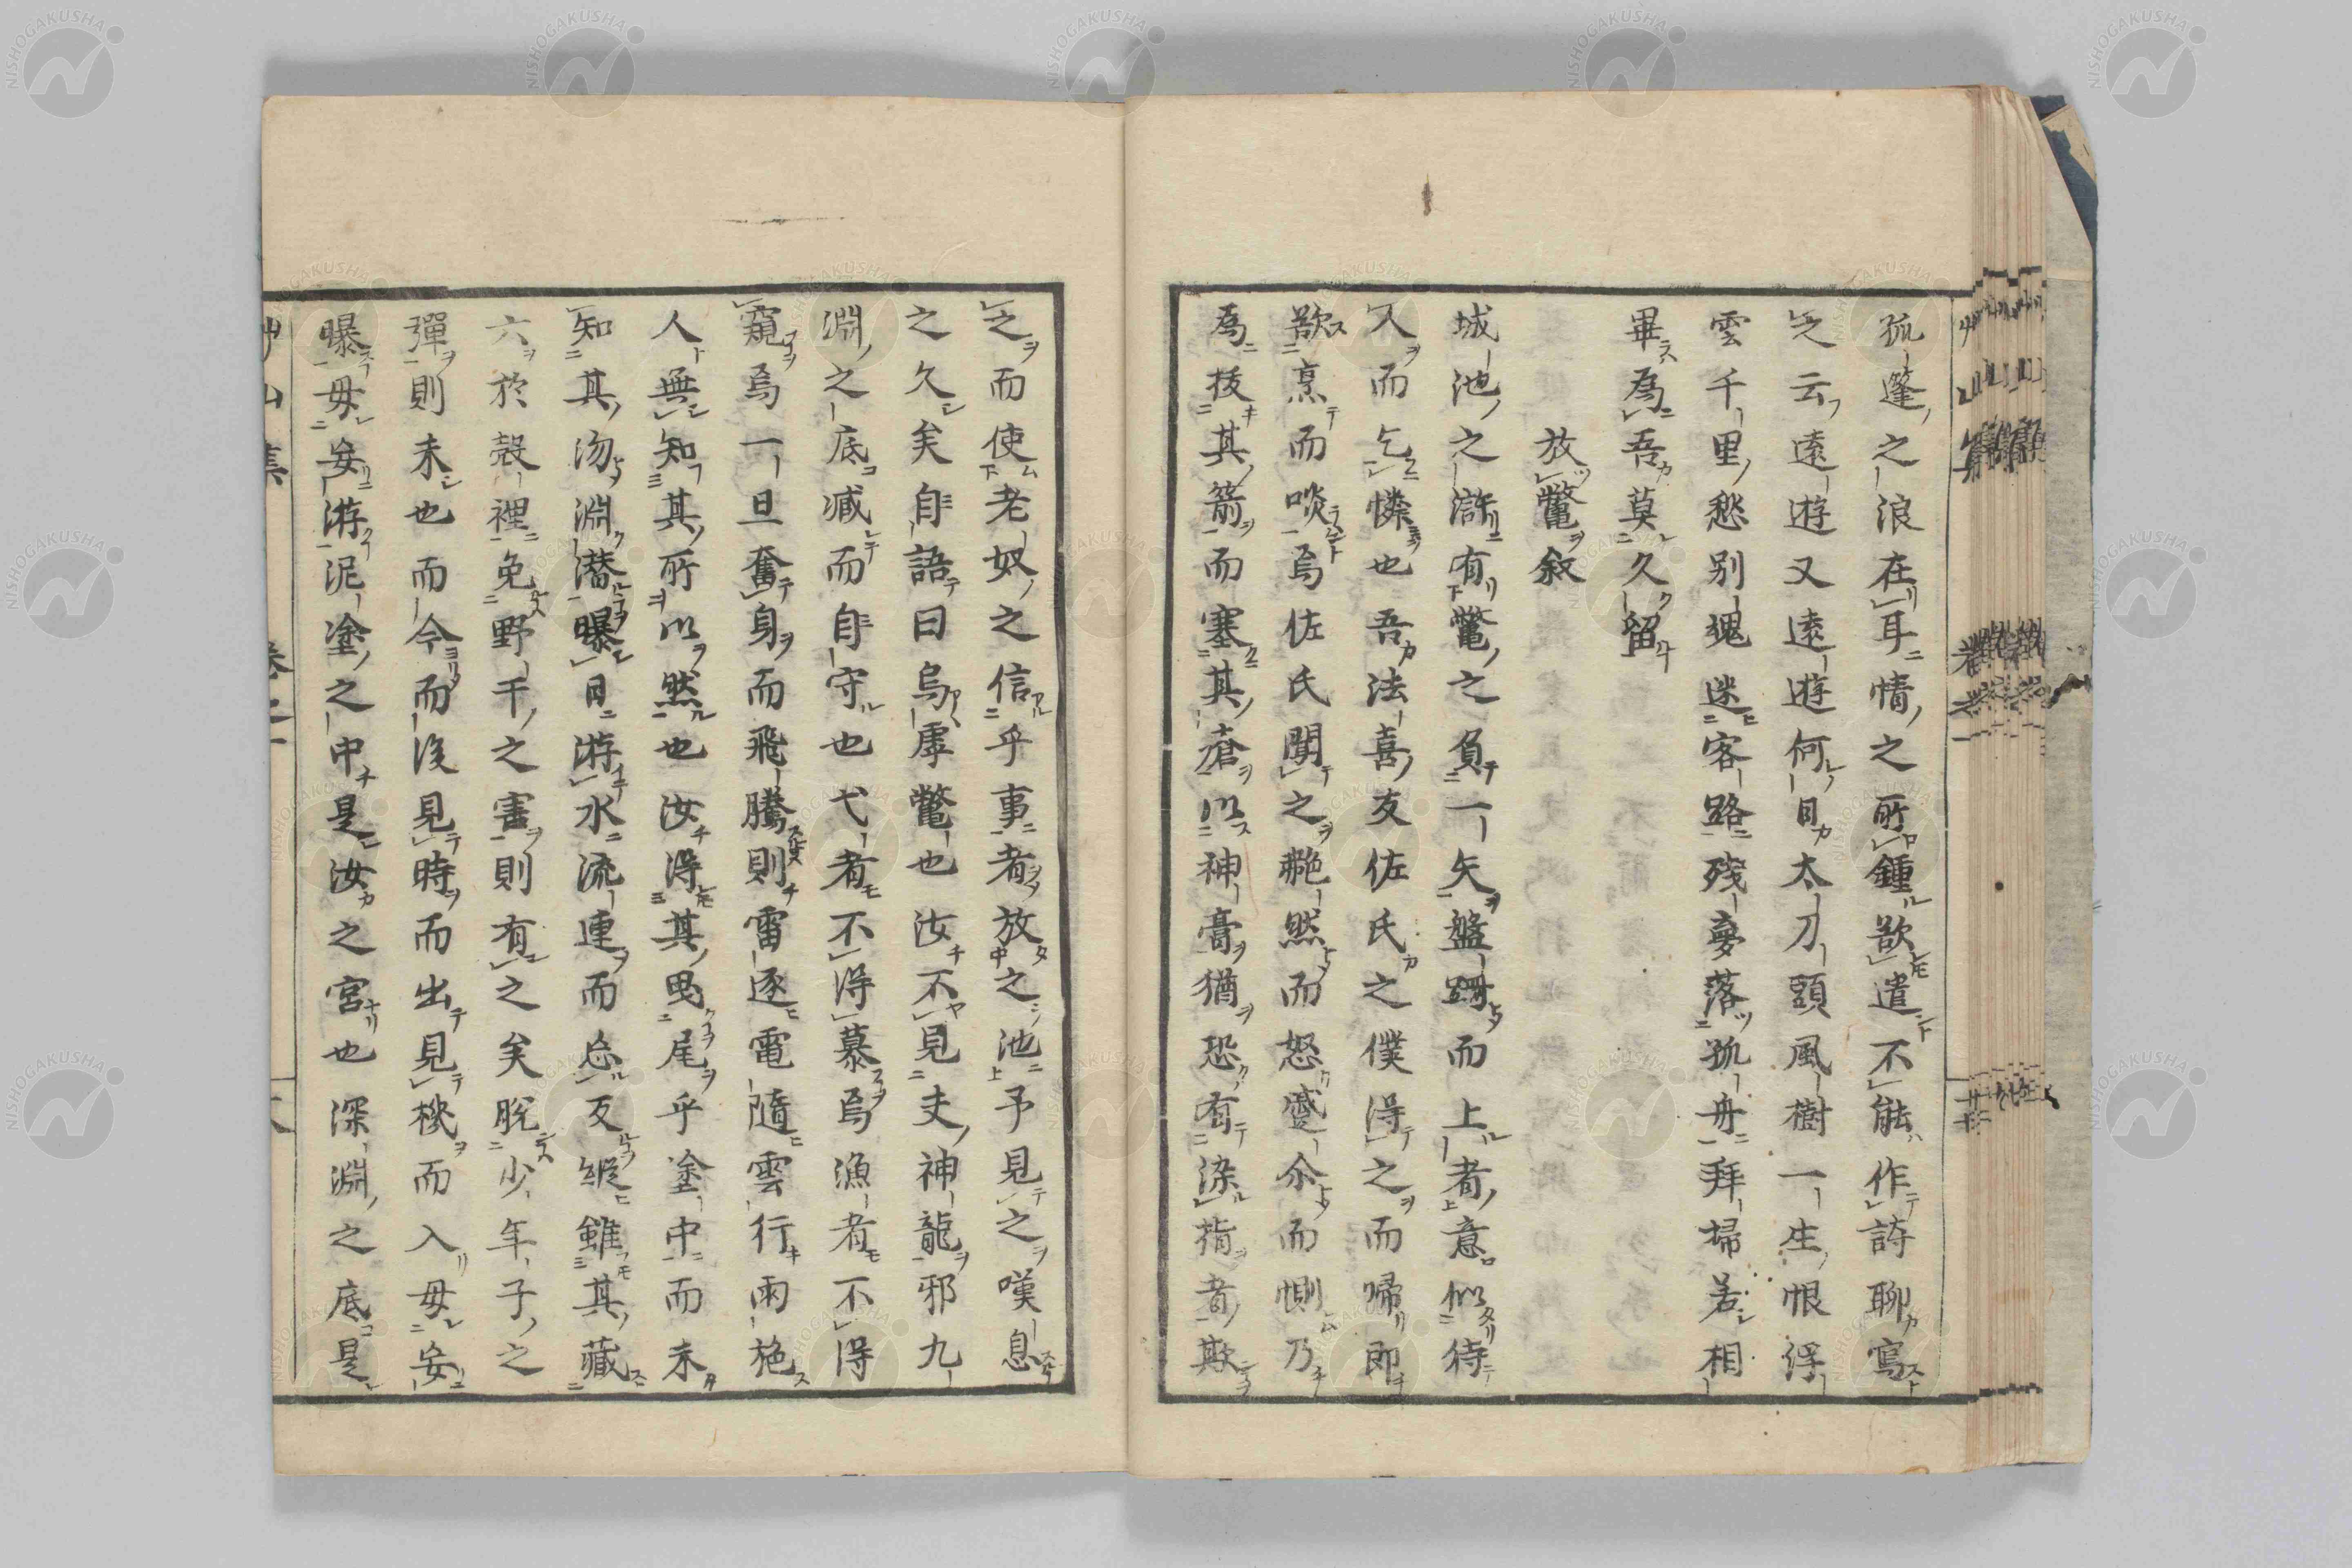 孤篷之浪在耳情之所鍾欲遣不能作詩聊寫
之云遠遊又遠遊何日太刀頭風樹一生恨浮
雲千里愁別魂迷客路殘夢落孤舟拜掃若相
畢為吾莫久留
放鼈叙
城池之滸有鼈之負一矢盤跚而上者意似待
人而乞憐也吾法喜友佐氏之僕得之而歸即
欲烹而啖焉佐氏聞之艴然而怒蹙尒而惻乃
為拔其箭而塞其瘡以神膏猶恐有染指者欺
之而使老奴之信乎事者放之池予見之嘆息
之久矣自語曰烏虖鼈也汝不見夫神龍邪九
淵之底減而自守也弋者不得慕焉漁者不得
窺焉一旦奮身而飛騰則雷逐電隨雲行雨施
人無知其所以然也汝得其曳尾乎塗中而未
知其沕淵潛曝日游水流連而忘反縱雖其藏
六於殼裡免野干之害則有之矣脫少年子之
彈則未也而今而後見時而出見機而入毋妄
曝毋妄游泥塗之中是汝之宮也深淵之底是
NISHOGAKUSHA